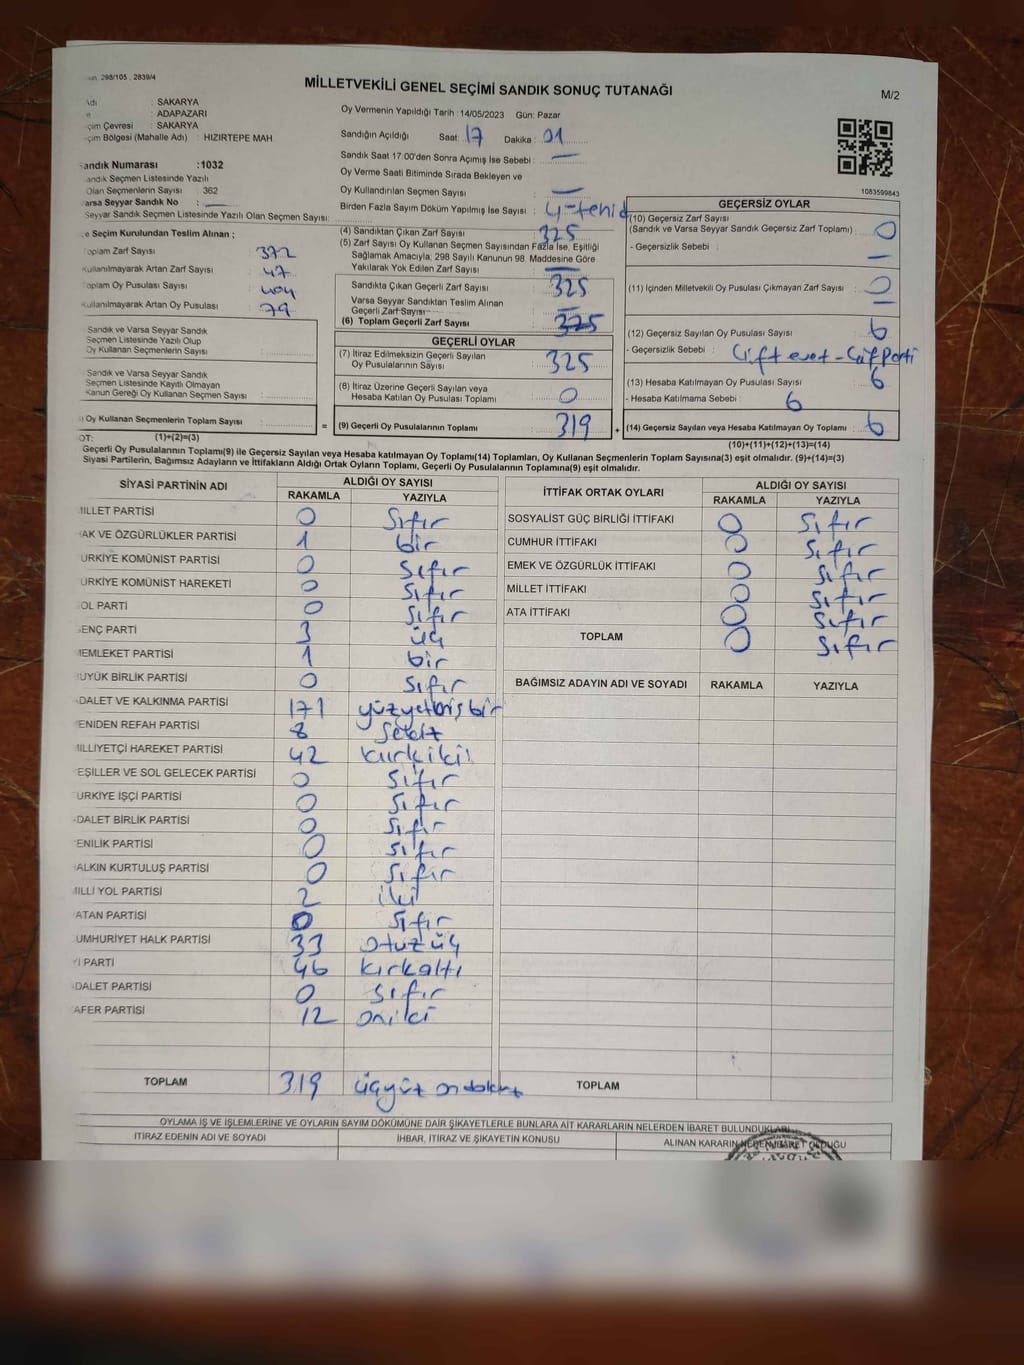 298/105 , 2839/4
MİLLETVEKİLİ GENEL SEÇİMİ SANDIK SONUÇ TUTANAĞI
M/2
: SAKARYA
: ADAPAZARI
çim Çevresi : SAKARYA
çim Bölgesi (Mahalle Adı) : HIZIRTEPE MAH
Oy Vermenin Yapıldığı Tarih : 14/05/2023 Gün: Pazar
Sandığın Açıldığı Saat: 17 Dakika : 01
Sandık Saat 17:00'den Sonra Açımış İse Sebebi : —
Oy Verme Saati Bitiminde Sırada Bekleyen ve
Oy Kullandırılan Seçmen Sayısı : —
Birden Fazla Sayım Döküm Yapılmış İse Sayısı :
1083599843
andık Numarası :1032
andık Seçmen Listesinde Yazılı
Olan Seçmenlerin Sayısı : 362
arsa Seyyar Sandık No : —
Seyyar Sandık Seçmen Listesinde Yazılı Olan Seçmen Sayısı:
e Seçim Kurulundan Teslim Alınan ;
oplam Zarf Sayısı : 372
ullanılmayarak Artan Zarf Sayısı : 47
oplam Oy Pusulası Sayısı : 404
ullanılmayarak Artan Oy Pusulası : 79
Sandık ve Varsa Seyyar Sandık
Seçmen Listesinde Yazılı Olup
Oy Kullanan Seçmenlerin Sayısı :
Sandık ve Varsa Seyyar Sandık
Seçmen Listesinde Kayıtlı Olmayan
Kanun Gereği Oy Kullanan Seçmen Sayısı :
Oy Kullanan Seçmenlerin Toplam Sayısı : =
(4) Sandıktan Çıkan Zarf Sayısı : 325
(5) Zarf Sayısı Oy Kullanan Seçmen Sayısından Fazla İse, Eşitliği
Sağlamak Amacıyla; 298 Sayılı Kanunun 98. Maddesine Göre
Yakılarak Yok Edilen Zarf Sayısı : —
Sandıkta Çıkan Geçerli Zarf Sayısı : 325
Varsa Seyyar Sandıktan Teslim Alınan
Geçerli Zarf Sayısı : —
(6) Toplam Geçerli Zarf Sayısı : 325
GEÇERLİ OYLAR
(7) İtiraz Edilmeksizin Geçerli Sayılan
Oy Pusulalarının Sayısı : 325
(8) İtiraz Üzerine Geçerli Sayılan veya
Hesaba Katılan Oy Pusulası Toplamı : 0
(9) Geçerli Oy Pusulalarının Toplamı : 319 +
GEÇERSİZ OYLAR
(10) Geçersiz Zarf Sayısı
(Sandık ve Varsa Seyyar Sandık Geçersiz Zarf Toplamı) : 0
- Geçersizlik Sebebi : —
(11) İçinden Milletvekili Oy Pusulası Çıkmayan Zarf Sayısı : 0
(12) Geçersiz Sayılan Oy Pusulası Sayısı : 6
- Geçersizlik Sebebi : Çift evet - Çift Parti
(13) Hesaba Katılmayan Oy Pusulası Sayısı : 6
- Hesaba Katılmama Sebebi : 6
(14) Geçersiz Sayılan veya Hesaba Katılmayan Oy Toplamı : 6
OT: (1)+(2)=(3)
(10)+(11)+(12)+(13)=(14)
Geçerli Oy Pusulalarının Toplamı(9) ile Geçersiz Sayılan veya Hesaba katılmayan Oy Toplamı(14) Toplamları, Oy Kullanan Seçmenlerin Toplam Sayısına(3) eşit olmalıdır. (9)+(14)=(3)
Siyasi Partilerin, Bağımsız Adayların ve İttifakların Aldığı Ortak Oyların Toplamı, Geçerli Oy Pusulalarının Toplamına(9) eşit olmalıdır.
SİYASİ PARTİNİN ADI ALDIĞI OY SAYISI
RAKAMLA YAZIYLA
İLLET PARTİSİ 0 Sıfır
AK VE ÖZGÜRLÜKLER PARTİSİ 1 bir
ÜRKİYE KOMÜNİST PARTİSİ 0 Sıfır
ÜRKİYE KOMÜNİST HAREKETİ 0 Sıfır
OL PARTİ 0 Sıfır
ENÇ PARTİ 3 üç
EMLEKET PARTİSİ 1 bir
ÜYÜK BİRLİK PARTİSİ 0 Sıfır
DALET VE KALKINMA PARTİSİ 171 yüzyetmişbir
ENİDEN REFAH PARTİSİ 8 Sekiz
İLLİYETÇİ HAREKET PARTİSİ 42 kırkiki
EŞİLLER VE SOL GELECEK PARTİSİ 0 Sıfır
ÜRKİYE İŞÇİ PARTİSİ 0 Sıfır
DALET BİRLİK PARTİSİ 0 Sıfır
ENİLİK PARTİSİ 0 Sıfır
ALKIN KURTULUŞ PARTİSİ 0 Sıfır
İLLİ YOL PARTİSİ 2 iki
ATAN PARTİSİ 0 Sıfır
UMHURİYET HALK PARTİSİ 33 otuzüç
Yİ PARTİ 46 kırkaltı
DALET PARTİSİ 0 Sıfır
AFER PARTİSİ 12 oniki
TOPLAM 319 üçyüz ondokuz
İTTİFAK ORTAK OYLARI ALDIĞI OY SAYISI
RAKAMLA YAZIYLA
SOSYALİST GÜÇ BİRLİĞİ İTTİFAKI 0 Sıfır
CUMHUR İTTİFAKI 0 Sıfır
EMEK VE ÖZGÜRLÜK İTTİFAKI 0 Sıfır
MİLLET İTTİFAKI 0 Sıfır
ATA İTTİFAKI 0 Sıfır
TOPLAM 0 Sıfır
BAĞIMSIZ ADAYIN ADI VE SOYADI RAKAMLA YAZIYLA
TOPLAM
OYLAMA İŞ VE İŞLEMLERİNE VE OYLARIN SAYIM DÖKÜMÜNE DAİR ŞİKAYETLERLE BUNLARA AİT KARARLARIN NELERDEN İBARET BULUNDUKLARI
İTİRAZ EDENİN ADI VE SOYADI İHBAR, İTİRAZ VE ŞİKAYETİN KONUSU ALINAN KARARIN NEDEN İBARET OLDUĞU